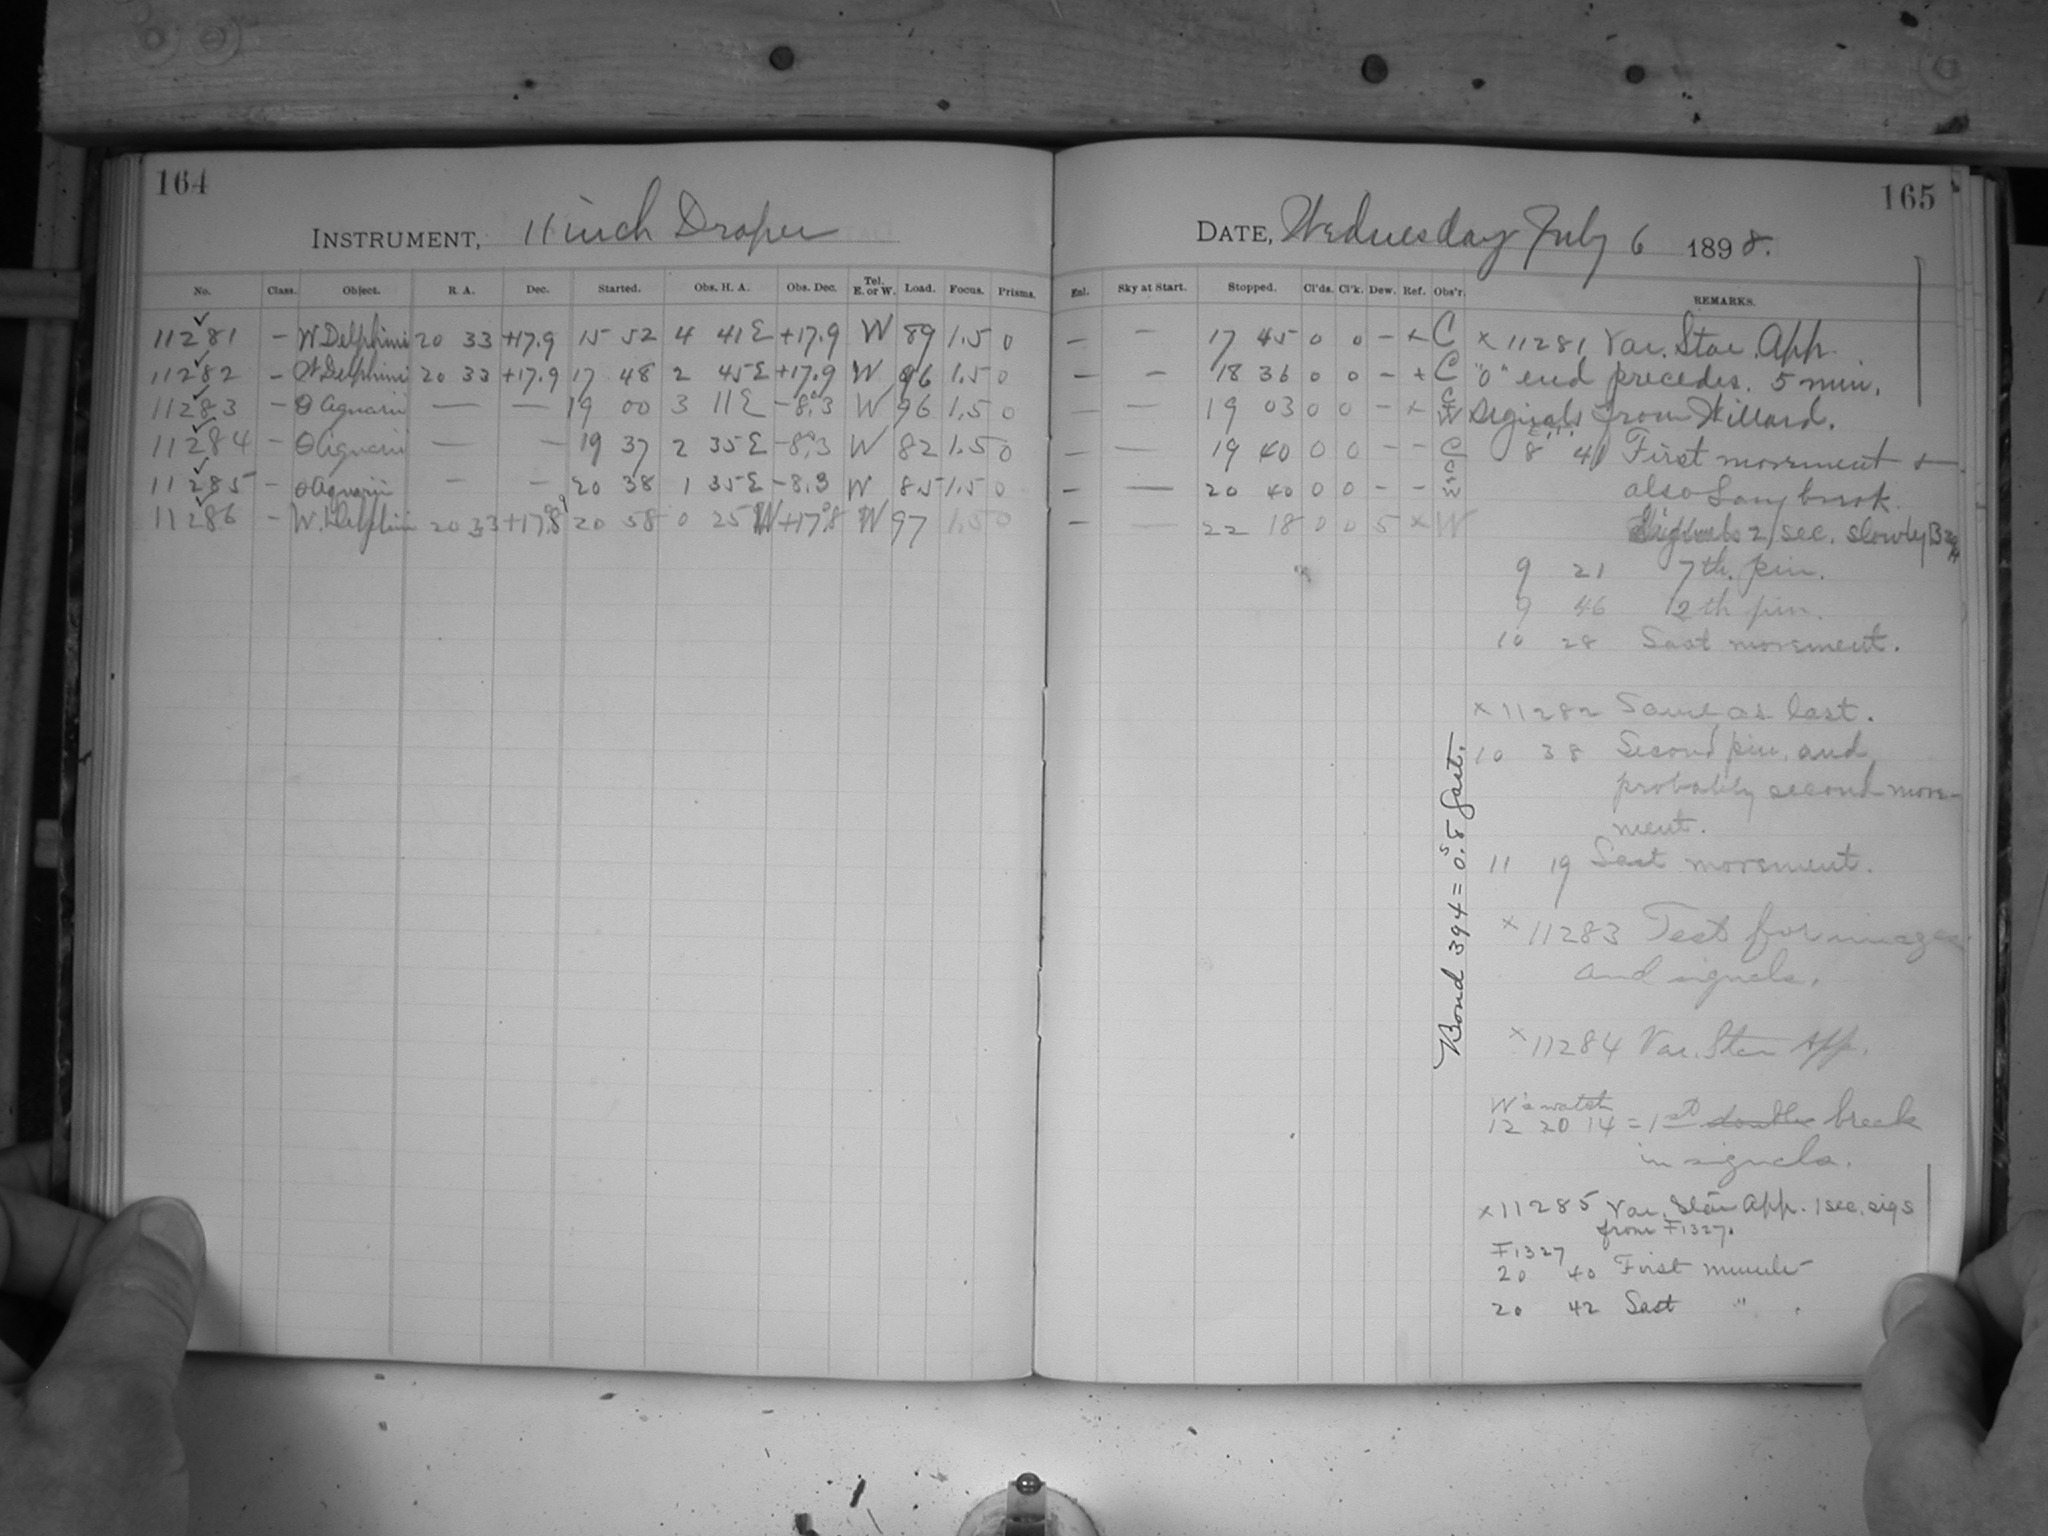 164
INSTRUMENT, 11 inch Draper
No. Class. Object. R. A. Dec. Started. Obs. H. A. Obs. Dec. Tel. E. or W. Load. Focus. Prisms.
11281 – W Delphini 20 33 +17.9 15 52 4 41 E +17.9 W 89 1.5 0
11282 – W Delphini 20 33 +17.9 17 48 2 45 E +17.9 W 96 1.5 0
11283 – θ Aquarii — — 19 00 3 11 E –8.°3 W 96 1.5 0
11284 – θ Aquarii — — 19 37 2 35 E –8.°3 W 82 1.5 0
11285 – θ Aquarii – – 20 38 1 35 E –8.3 W 85 1.5 0
11286 – W. Delphini 20 33 +17.°8 20 58 0 25 W +17.°8 W 97 1.5 0
165
DATE, Wednesday July 6 1898.
Enl. Sky at Start. Stopped. Cl'ds. Cl'k. Dew. Ref. Obs'r. REMARKS.
– – 17 45 0 0 – × C
– – 18 36 0 0 – × C
– — 19 03 0 0 – × C W
– — 19 40 0 0 – – C
– — 20 40 0 0 – – C W
– — 22 18 0 0 5 × W
× 11281 Var. Star. App.
"0" end precedes. 5 min.
Signals from Willard.
8 41 First movement &
also Long break.
2/sec. slowly
9 21 7th. pin.
9 46 12th pin.
10 28 Last movement.
× 11282 Same as last.
10 38 Second pin, and
probably second move-
ment.
11 19 Last movement.
× 11283 Test for images
and signals.
× 11284 Var. Star App.
W's watch
12 20 14 = 1st double break
in signals.
× 11285 Var. Star App. 1 sec. sigs
from F1327.
F1327
20 40 First minute
20 42 Last " .
Bond 394 = 0.ˢ8 fast.